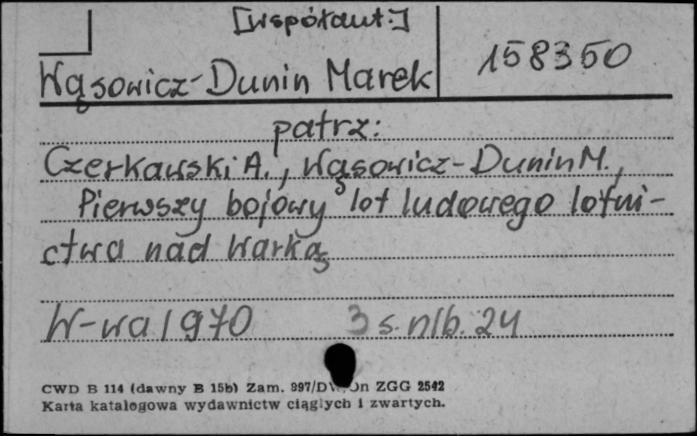 [współaut:]
Wąsowicz-Dunin Marek
158350
patrz:
Czerkawski A., Wąsowicz-Dunin M.,
Pierwszy bojowy lot ludowego lotni-
ctwa nad Warką
W-wa 1970 3 s. nlb. 24
CWD B 114 (dawny B 15b) Zam. 997/DW/On ZGG 2542
Karta katalogowa wydawnictw ciągłych i zwartych.